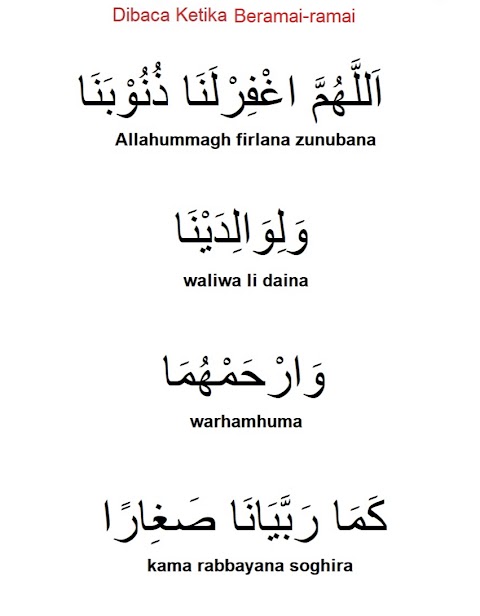 Dibaca Ketika Beramai-ramai
اَللَّهُمَّ اغْفِرْ لَنَا ذُنُوْبَنَا
Allahummagh firlana zunubana
وَلِوَالِدَيْنَا
waliwa li daina
وَارْحَمْهُمَا
warhamhuma
كَمَا رَبَّيَانَا صَغِارًا
kama rabbayana soghira